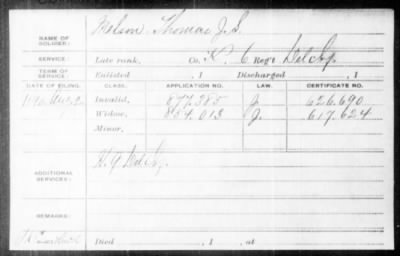 NAME OF SOLDIER: Nelson Thomas J. S.
SERVICE: Late rank, Co. K, 6 Reg't Del Inf.
TERM OF SERVICE: Enlisted , 1 Discharged , 1
DATE OF FILING. CLASS. APPLICATION NO. LAW. CERTIFICATE NO.
1890 Aug 2 Invalid, 877.385 J. 626.690
Widow, 854.013 J. 617.624
Minor,
ADDITIONAL SERVICES: Del Inf.
REMARKS:
Died , 1 , at